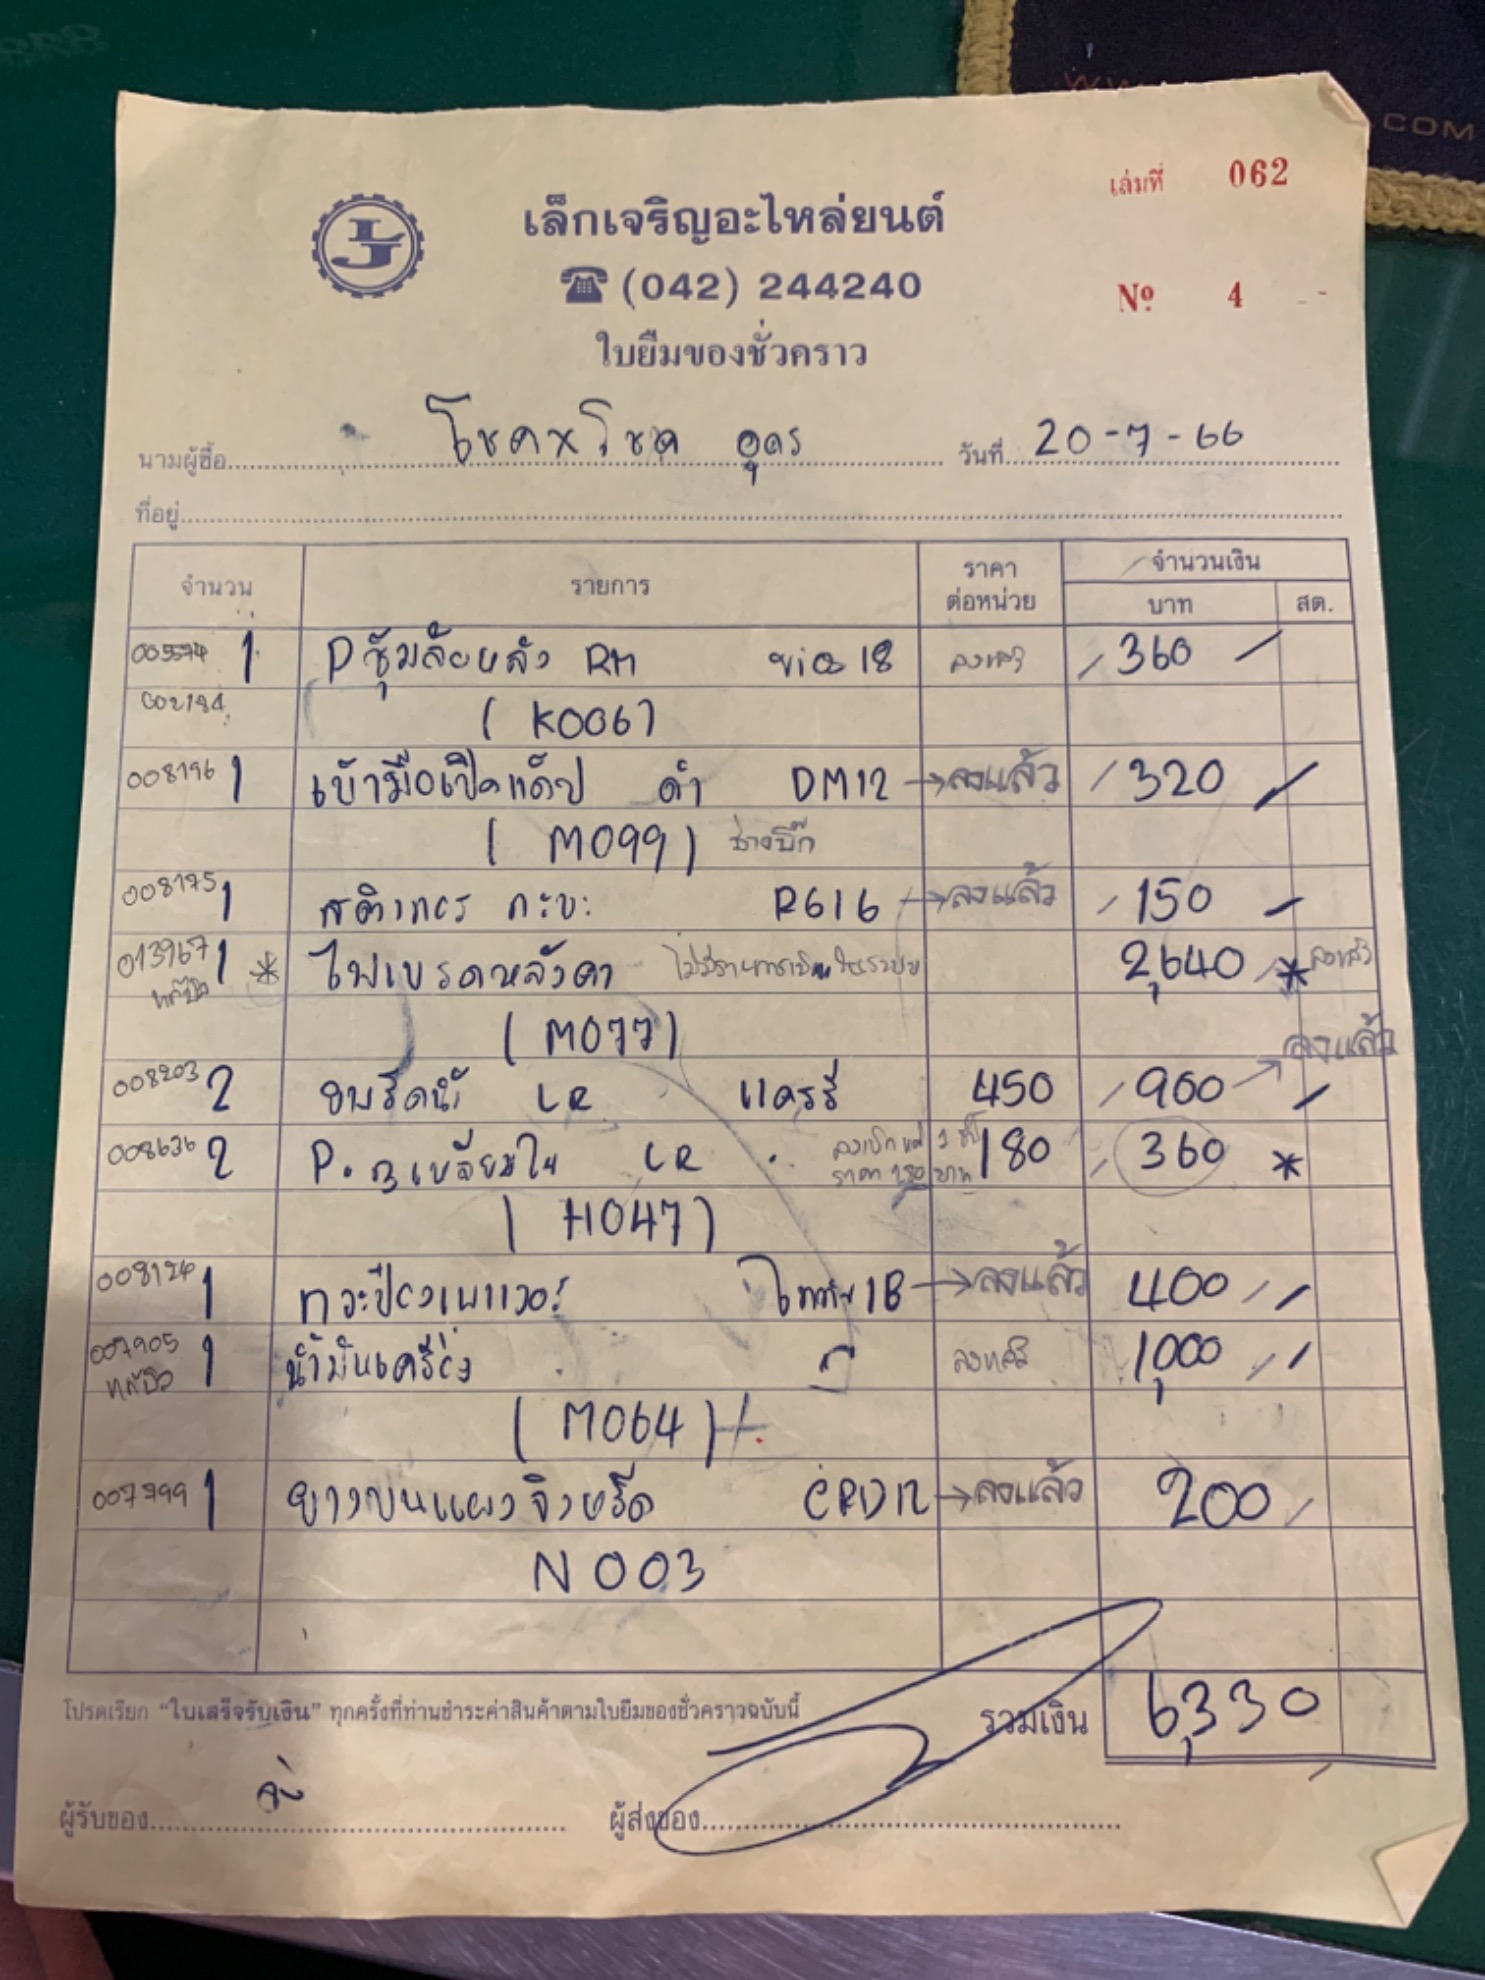 เล่มที่ 062
เล็กเจริญอะไหล่ยนต์
(042) 244240
Nº 4
ใบยืมของชั่วคราว
นามผู้ซื้อ โชคxโชค อุดร วันที่ 20-7-66
ที่อยู่
จำนวน รายการ ราคาต่อหน่วย จำนวนเงิน
บาท สต.
005574 1 Pซุ้มล้อหลัง RH vios 18 ลงแล้ว 360
002184 (K006)
008196 1 เบ้ามือเปิดแค็ป ดำ DM12 → ลงแล้ว 320
(M099) ช่างบิ๊ก
008175 1 สติกเกอร์ กะบะ R616 → ลงแล้ว 150
013967 1 * ไฟเบรคหลังคา 2,640 * ลงแล้ว
แก้บิล (M077)
ลงแล้ว
008203 2 LR แครรี่ 450 900
008636 2 LR ลงเบิกแค่ 1 ชิ้น 180 360 *
ราคา 180 บาท
(H047)
008124 1 กระป๋องเพาเวอร์ ไททัน 1B → ลงแล้ว 400
007905 1 น้ำมันเครื่อง ลงแล้ว 1,000
แก้บิล
(M064)
007799 1 ยางบนแผงจิ้งหรีด CRD12 → ลงแล้ว 200
N003
โปรดเรียก "ใบเสร็จรับเงิน" ทุกครั้งที่ท่านชำระค่าสินค้าตามใบยืมของชั่วคราวฉบับนี้ รวมเงิน 6,330
ผู้รับของ ผู้ส่งของ